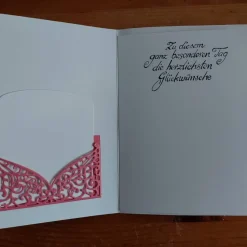 Zu diesem
ganz besonderen Tag
die herzlichsten
Glückwünsche